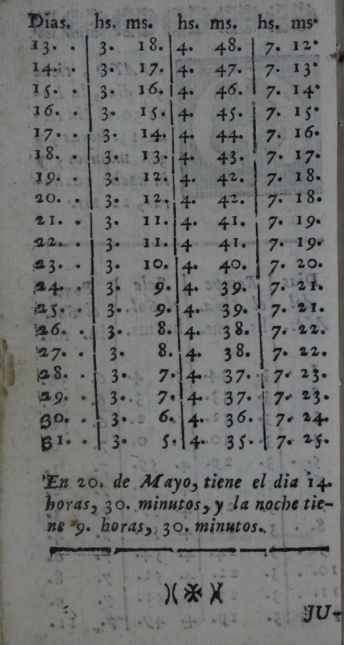 Dias. hs. ms. hs. ms. hs. ms.
13. . 3. 18. 4. 48. 7. 12.
14. . 3. 17. 4. 47. 7. 13.
15. . 3. 16. 4. 46. 7. 14.
16. . 3. 15. 4. 45. 7. 15.
17. . 3. 14. 4. 44. 7. 16.
18. . 3. 13. 4. 43. 7. 17.
19. . 3. 12. 4. 42. 7. 18.
20. . 3. 12. 4. 42. 7. 18.
21. . 3. 11. 4. 41. 7. 19.
22. . 3. 11. 4. 41. 7. 19.
23. . 3. 10. 4. 40. 7. 20.
24. . 3. 9. 4. 39. 7. 21.
25. . 3. 9. 4. 39. 7. 21.
26. . 3. 8. 4. 38. 7. 22.
27. . 3. 8. 4. 38. 7. 22.
28. . 3. 7. 4. 37. 7. 23.
29. . 3. 7. 4. 37. 7. 23.
30. . 3. 6. 4. 36. 7. 24
31. . 3. 5. 4. 35. 7. 25.
En 20. de Mayo, tiene el dia 14.
horas, 30. minutos, y la noche tie-
ne 9. horas, 30. minutos.
JU-